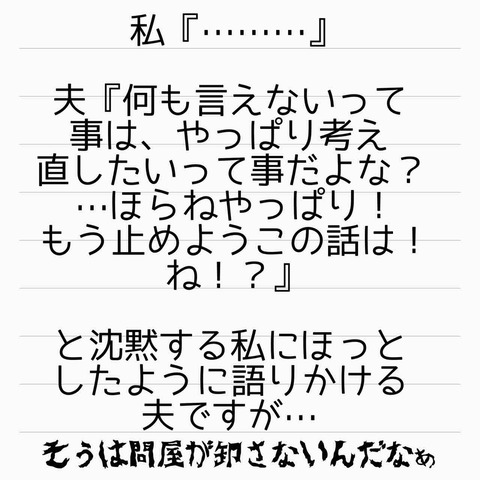 私『………』
夫『何も言えないって
事は、やっぱり考え
直したいって事だよな？
…ほらねやっぱり！
もう止めようこの話は！
ね！？』
と沈黙する私にほっと
したように語りかける
夫ですが…
そうは問屋が卸さないんだなぁ